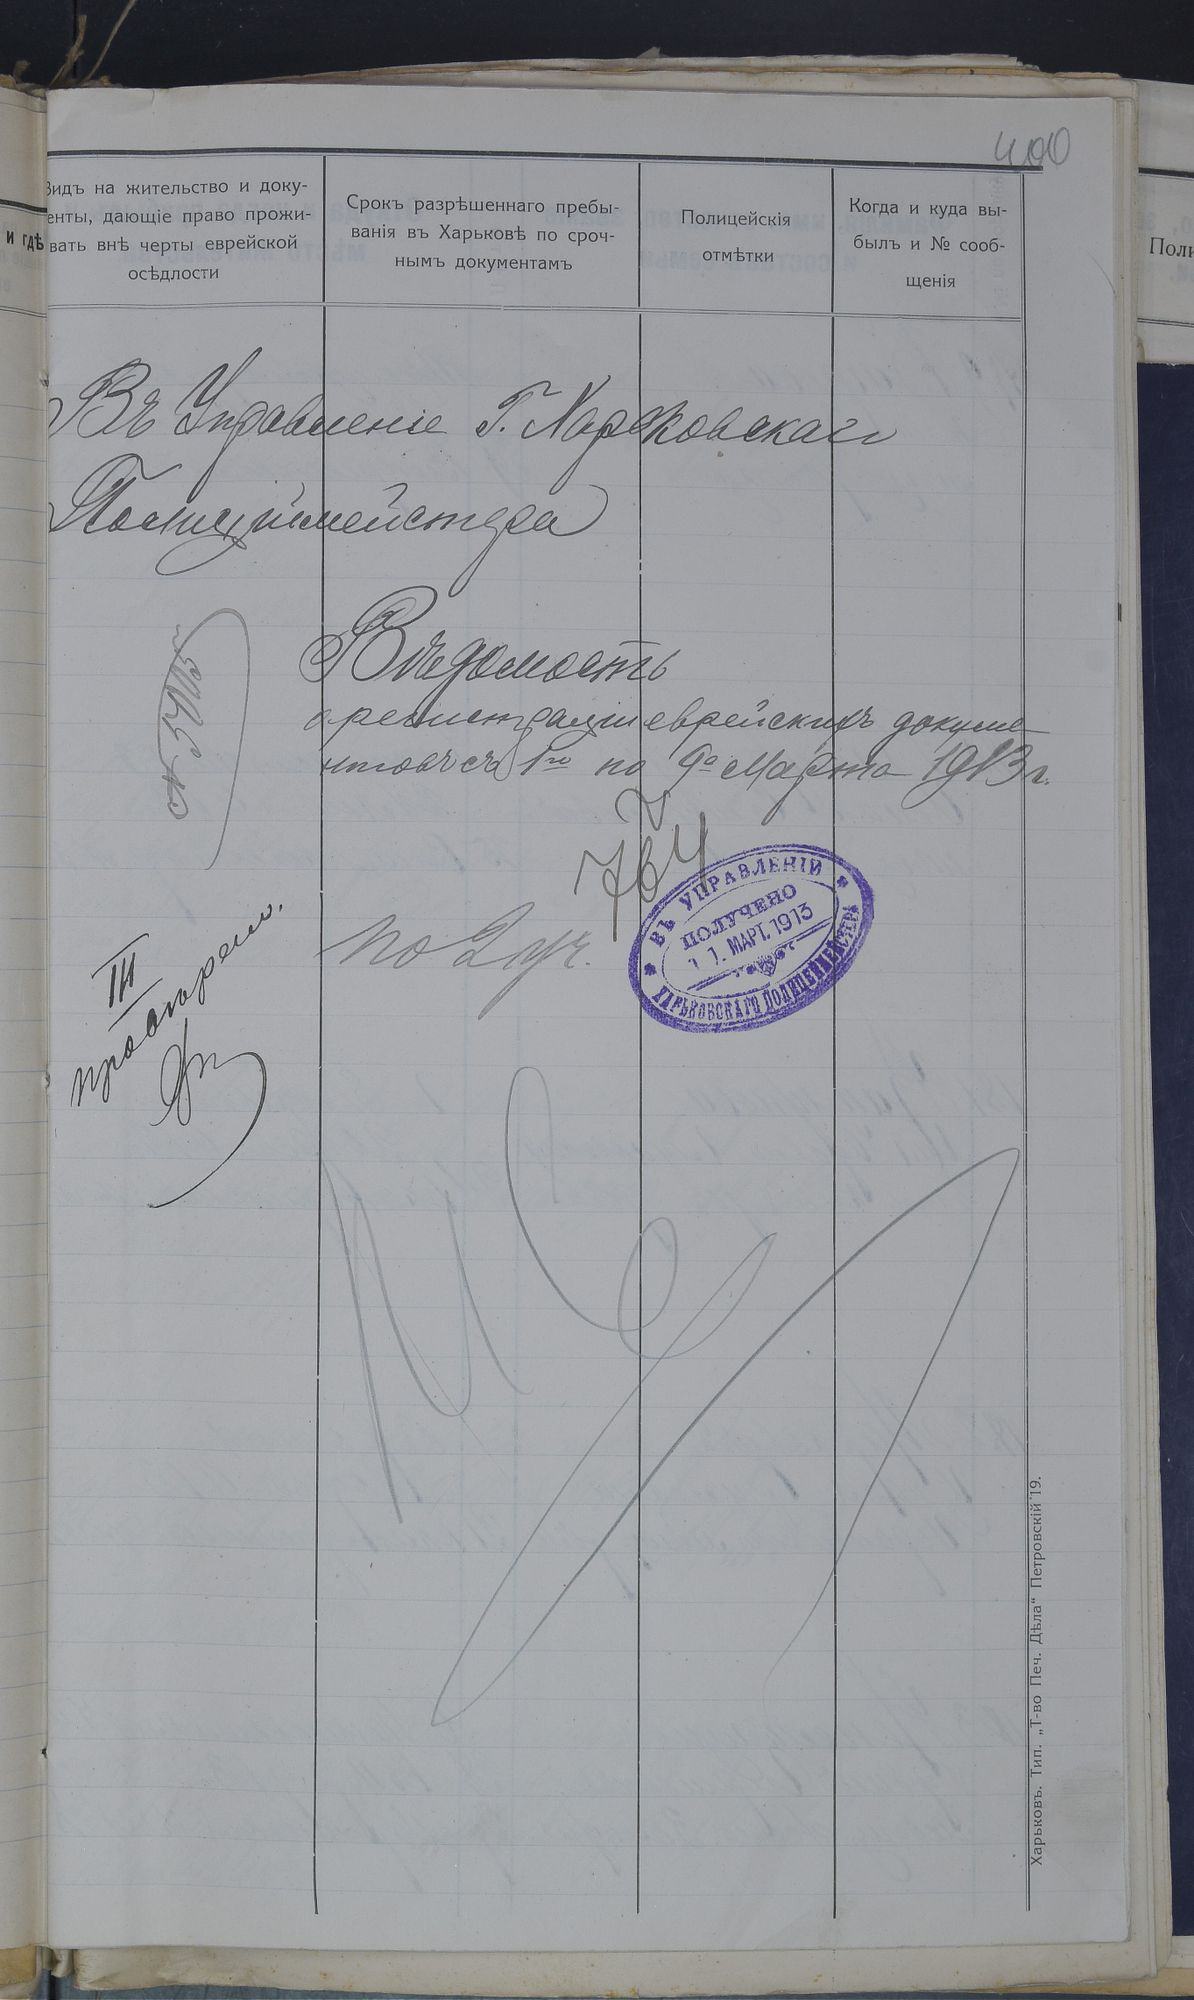 400
Видъ на жительство и доку-
енты, дающіе право прожи-
вать внѣ черты еврейской
осѣдлости
Срокъ разрѣшеннаго пребы-
ванія въ Харьковѣ по сроч-
нымъ документамъ
Полицейскія
отмѣтки
Когда и куда вы-
былъ и № сооб-
щенія
и гдѣ
Поли
Въ Управленіе Г. Харьковскаго
Полиціймейстера
Вѣдомость
о регистраціи еврейскихъ докуме-
нтовъ съ 1го по 9е Марта 1913 г.
764
по 2 уч.
III
ВЪ УПРАВЛЕНІИ
ПОЛУЧЕНО
11. МАРТ. 1913
ХАРЬКОВСКАГО ПОЛИЦЕЙМЕЙСТЕРА
Харьковъ. Тип. „Т-во Печ. Дѣла“ Петровскій 19.